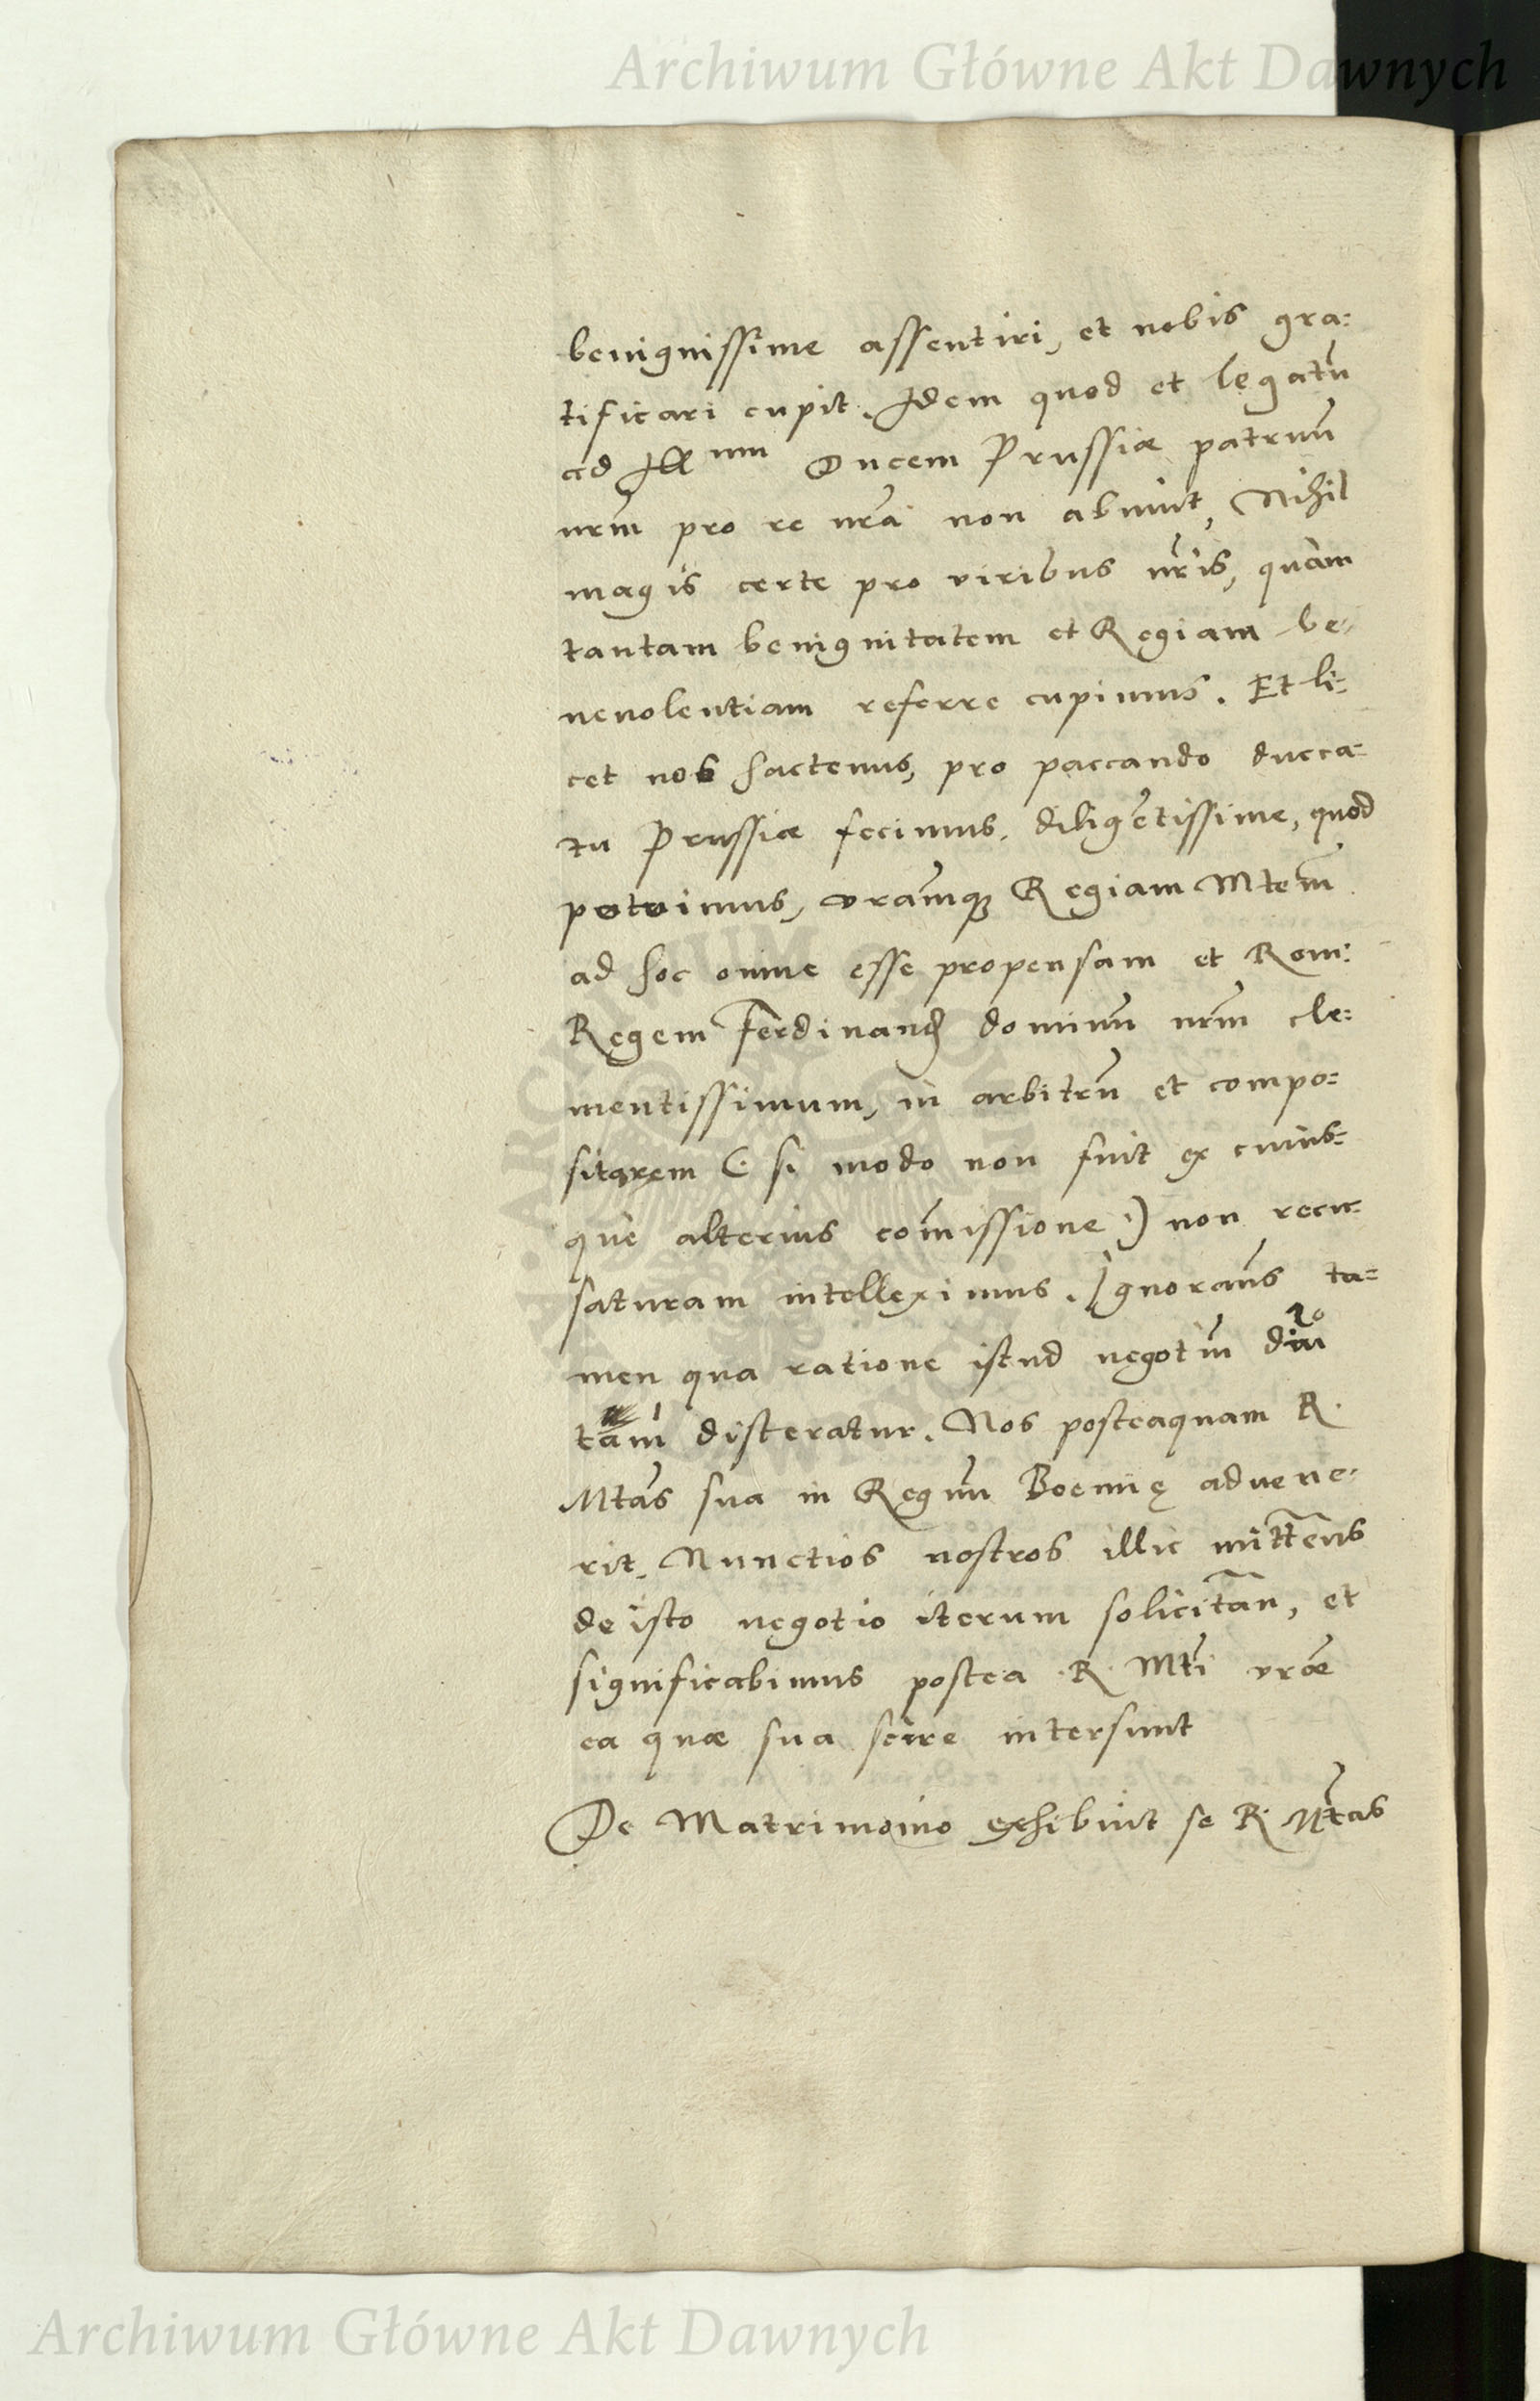 Archiwum Główne Akt Dawnych
benignissime assentiri, et nobis gra:
tificari cupit. Idem quod et legatũ
ad Illmum Ducem Prussiæ patruũ
nrm̃ pro re nrã non abnuit, Nihil
magis certe pro viribus nr̃is, quàm
tantam benignitatem et Regiam be-
nevolentiam referre cupimus. Et li:
cet nos hactenus, pro paccando ducca:
tu Prussiæ fecimus, diligẽtissime, quod
potuimus, vramq3 Regiam Mtem̃
ad hoc omne esse propensam et Rom:
Regem Ferdinand dominũ nrm̃ cle:
mentissimum, in arbitrũ et compo:
sitorem (: si modo non fuit ex cuius:
que alterius com̃issione :) non recu:
saturam intelleximus. Ignoram̃s ta:
men qua ratione istud negotiũ diu
tam̃ disteratur. Nos posteaquam R.
Mtas̃ sua in Regnũ Boemię advene:
rit. Nunctios nostros illic mittem̃s
de isto negotio iterum solicitan̄, et
significabimus postea R. Mti̇̃ vræ
ea quæ sua scire intersunt
De Matrimonio exhibuit se R. Mtas̃
Archiwum Główne Akt Dawnych